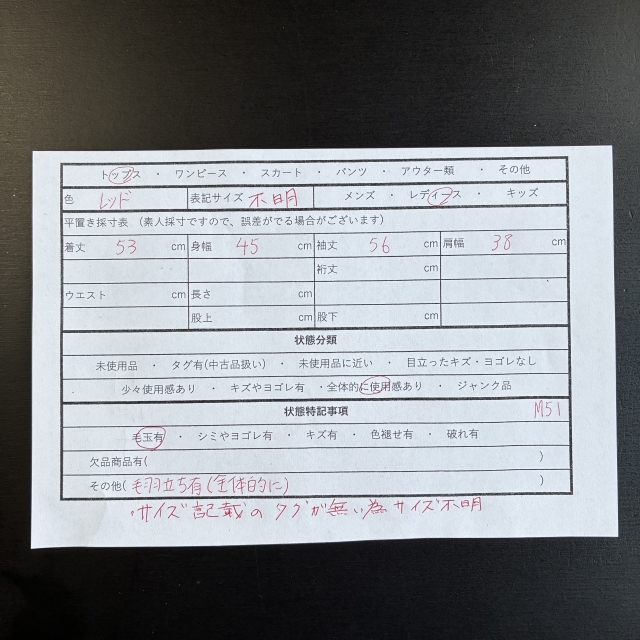 トップス ・ ワンピース ・ スカート ・ パンツ ・ アウター類 ・ その他
色 レッド 表記サイズ 不明 メンズ ・ レディース ・ キッズ
平置き採寸表 (素人採寸ですので、誤差がでる場合がございます)
着丈 53 cm 身幅 45 cm 袖丈 56 cm 肩幅 38 cm
裄丈 cm
ウエスト cm 長さ cm
股上 cm 股下 cm
状態分類
未使用品 ・ タグ有(中古品扱い) ・ 未使用品に近い ・ 目立ったキズ・ヨゴレなし
少々使用感あり ・ キズやヨゴレ有 ・全体的に使用感あり ・ ジャンク品
状態特記事項 M51
毛玉有 ・ シミやヨゴレ有 ・ キズ有 ・ 色褪せ有 ・ 破れ有
欠品商品有( )
その他( 毛羽立ち有(全体的に) )
・サイズ記載のタグが無い為サイズ不明